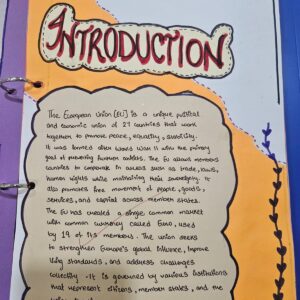 INTRODUCTION
The European Union (EU) is a unique political
and economic union of 27 countries that work
together to promote peace, equality,
It was formed after World War II with the primary
goal of preventing further conflicts. The EU allows members
countries to cooperate in areas such as trade, laws,
human rights while maintaining their sovereignty. It
also promotes free movement of people, goods,
services, and capital across member states.
The EU has created a single common market
with common currency called Euro, used
by 19 of its members. The union seeks
to strengthen Europe's global influence, improve
living standards, and address challenges
collectively. It is governed by various institutions
that represent citizens, member states, and the